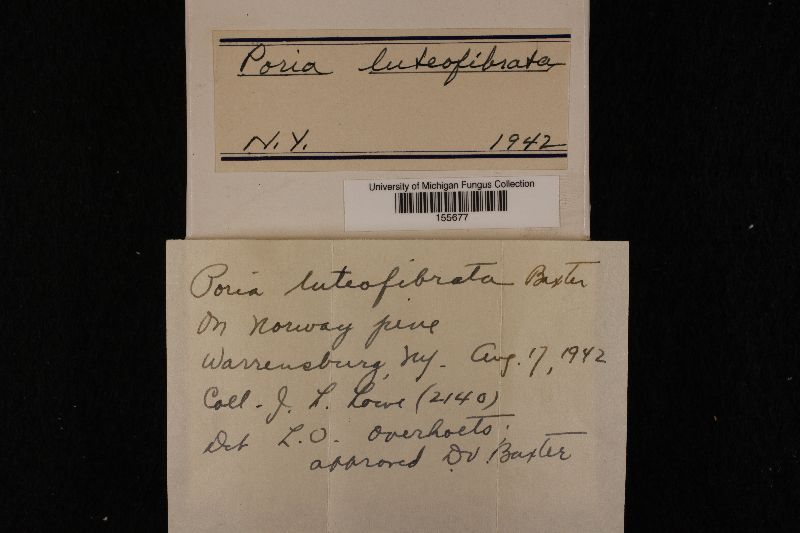 Poria luteofibrata
N.Y. 1942
University of Michigan Fungus Collection
155677
Poria luteofibrata Baxter
On Norway pine
Warrensburg, N.Y. Aug. 17, 1942
Coll. J. L. Lowe (2140)
Det L.O. Overholts.
approved D.V. Baxter